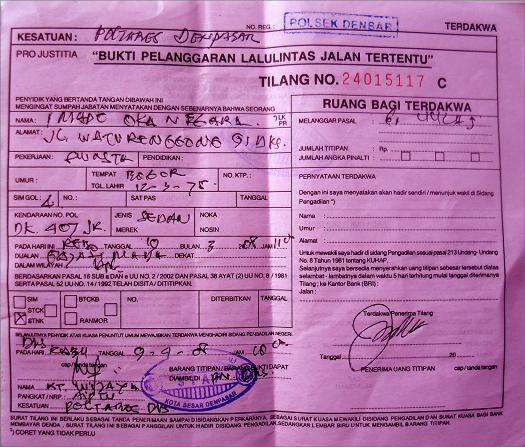 NO. REG.: POLSEK DENBAR TERDAKWA
KESATUAN : POLTABES DENPASAR
PRO JUSTITIA "BUKTI PELANGGARAN LALULINTAS JALAN TERTENTU"
TILANG NO. 24015117 C
PENYIDIK YANG BERTANDA TANGAN DIBAWAH INI
MENGINGAT SUMPAH JABATAN MENYATAKAN DENGAN SEBENARNYA BAHWA SEORANG
NAMA : I MADE OKA NEGARA. LK PR
ALAMAT : JL WATURENGGONG
PEKERJAAN : SWASTA PENDIDIKAN :
UMUR : TEMPAT BOGOR NO. KTP. :
TGL. LAHIR 12-3-75
SIM GOL. : SAT PAS TANGGAL
KENDARAAN NO. POL JENIS SEDAN NOKA
DK. 407 JK. MEREK NOSIN
PADA HARI INI TANGGAL 10 BULAN 3 08 JAM
DIJALAN DEKAT
DALAM WILAYAH
BERDASARKAN PASAL 16 SUB a DAN e UU NO. 2/2002 DAN PASAL 38 AYAT (2) UU NO. 8 / 1981
SERTA PASAL 52 UU NO. 14 / 1992 TELAH DISITA / DITITIPKAN.
SIM BTCKB NO. DITERBITKAN TANGGAL
STCK BKB
STNK RANMOR
SELANJUTNYA PENYIDIK ATAS KUASA PENUNTUT UMUM MEWAJIBKAN TERDAKWA MENGHADIRI SIDANG PENGADILAN NEGERI
DPS
PADA HARI RABU TANGGAL JAM
cap / tanda tangan BARANG TITIPAN / BARANG BUKTI DAPAT
DIAMBIL DI
NAMA KT. WIJAYA cap/tanda tangan
PANGKAT / NRP.
KESATUAN POLTABES DPS
KOTA BESAR DENPASAR
RUANG BAGI TERDAKWA
MELANGGAR PASAL : 61
JUMLAH TITIPAN : Rp.
JUMLAH ANGKA PINALTI :
PERNYATAAN TERDAKWA
Dengan ini saya menyatakan akan hadir sendiri / menunjuk wakil di Sidang
Pengadilan *)
Nama :
Umur :
Alamat :
Untuk mewakili saya hadir di sidang Pengadilan sesuai pasal 213 Undang-Undang
No. 8 Tahun 1981 tentang KUHAP.
Selanjutnya saya bersedia menyerahkan uang titipan sebesar tersebut diatas
selambat - lambatnya dalam waktu 5 hari terhitung mulai tanggal diterimanya
Tilang ; ke Kantor Bank (BRI) :
Jalan :
Terdakwa Penerima Tilang cap / tanda tangan
Tanggal 20
PENERIMA UANG TITIPAN
SURAT TILANG INI BERLAKU SEBAGAI TANDA PENERIMAAN SAMPAI DISIDANGKAN PERKARANYA, SEBAGAI SURAT KUASA MEWAKILI DISIDANG PENGADILAN DAN SURAT KUASA BAGI BANK
MEMBAYAR DENDA, SURAT TILANG INI SEBAGAI PANGGILAN UNTUK HADIR DISIDANG PENGADILAN.SEDANGKAN LEMBAR BIRU UNTUK MENGAMBIL BARANG TITIPAN.
*) CORET YANG TIDAK PERLU